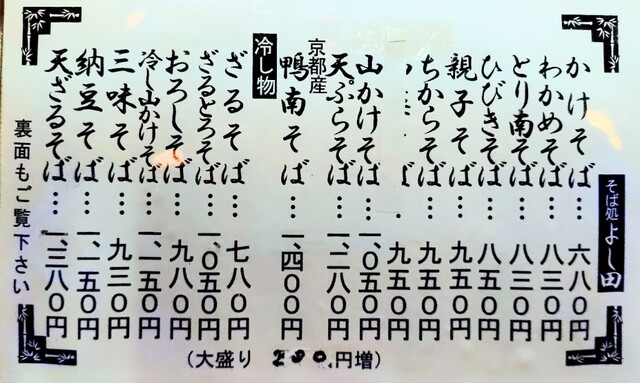 そば処 よし田
かけそば…六八〇円
わかめそば…八三〇円
とり南そば…八三〇円
ひびきそば…八五〇円
親子そば…九五〇円
ちからそば…九五〇円
九五〇円
山かけそば…一、〇五〇円
天ぷらそば…一、二八〇円
京都産
鴨南そば…一、四〇〇円
冷し物
ざるそば…七八〇円
ざるとろそば…一、〇五〇円
おろしそば…九八〇円
冷し山かけそば…一、一五〇円
三味そば…九三〇円
納豆そば…一、一五〇円
天ざるそば…一、三八〇円
裏面もご覧下さい
(大盛り 200円増)